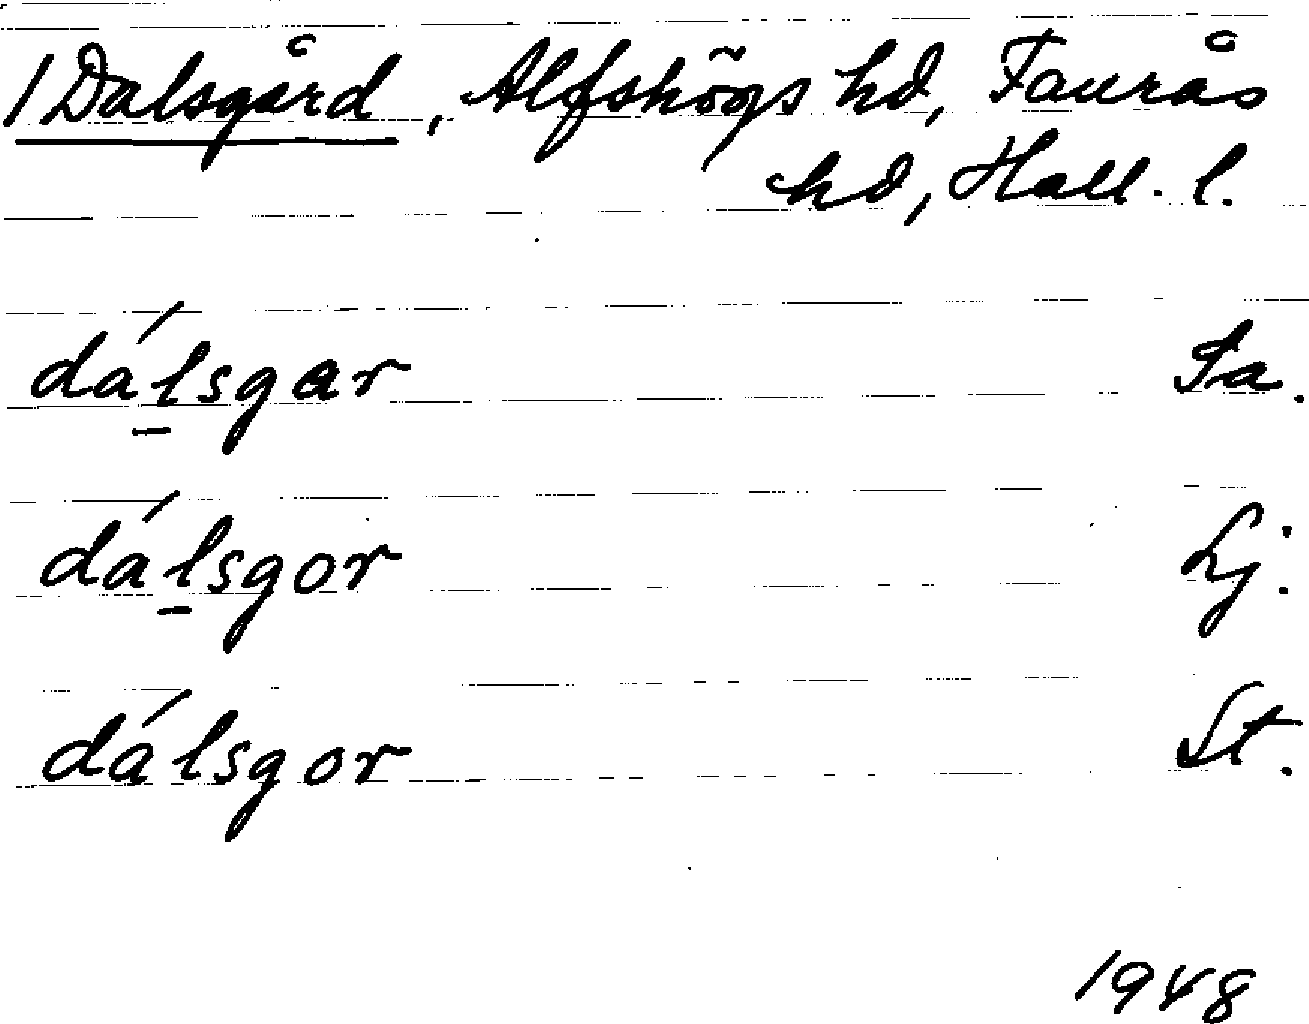 /Dalsgård, Alfshögs hd, Faurås
hd, Hall. l.
dálsgar Sa.
dálsgor Lj.
dálsgor St.
1948